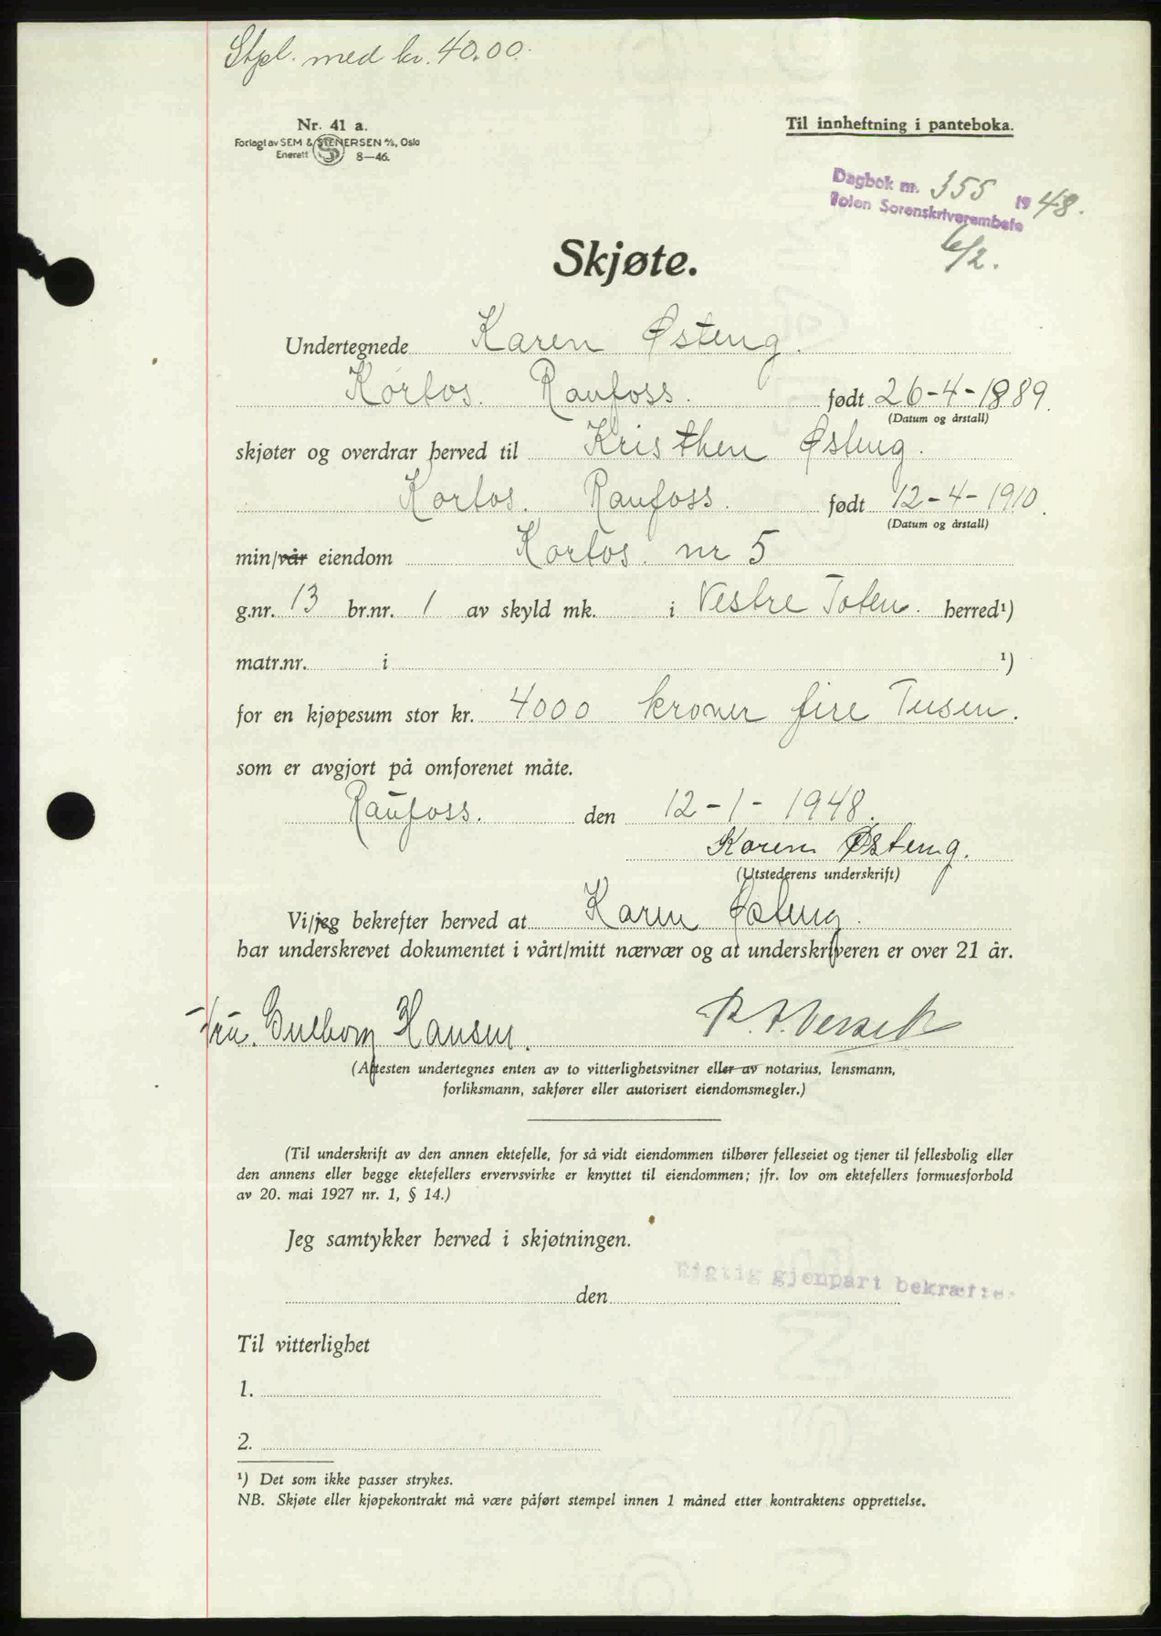 Stpl. med kr. 40.00.
Nr. 41 a.
Forlagt av SEM & STENERSEN A/S, Oslo
Enerett 8—46.
Til innheftning i panteboka.
Dagbok nr. 355 1948.
Toten Sorenskriverembete
6/2.
Skjøte.
Undertegnede Karen Østeng.
Kortos. Raufoss. født 26-4-1889.
(Datum og årstall)
skjøter og overdrar herved til Kristhen Østeng.
Kortos. Raufoss. født 12-4-1910.
(Datum og årstall)
min/vår eiendom Kortos. nr 5
g.nr. 13 br.nr. 1 av skyld mk. i Vestre Toten. herred¹)
matr.nr. i ¹)
for en kjøpesum stor kr. 4000 kroner fire Tusen.
som er avgjort på omforenet måte.
Raufoss. den 12-1-1948.
Karen Østeng.
(Utstederens underskrift)
Vi/jeg bekrefter herved at Karen Østeng.
har underskrevet dokumentet i vårt/mitt nærvær og at underskriveren er over 21 år.
Fru. Hansen.
(Attesten undertegnes enten av to vitterlighetsvitner eller av notarius, lensmann,
forliksmann, sakfører eller autorisert eiendomsmegler.)
(Til underskrift av den annen ektefelle, for så vidt eiendommen tilhører felleseiet og tjener til fellesbolig eller
den annens eller begge ektefellers ervervsvirke er knyttet til eiendommen; jfr. lov om ektefellers formuesforhold
av 20. mai 1927 nr. 1, § 14.)
Jeg samtykker herved i skjøtningen.
Rigtig gjenpart bekræftes
den
Til vitterlighet
1.
2.
¹) Det som ikke passer strykes.
NB. Skjøte eller kjøpekontrakt må være påført stempel innen 1 måned etter kontraktens opprettelse.